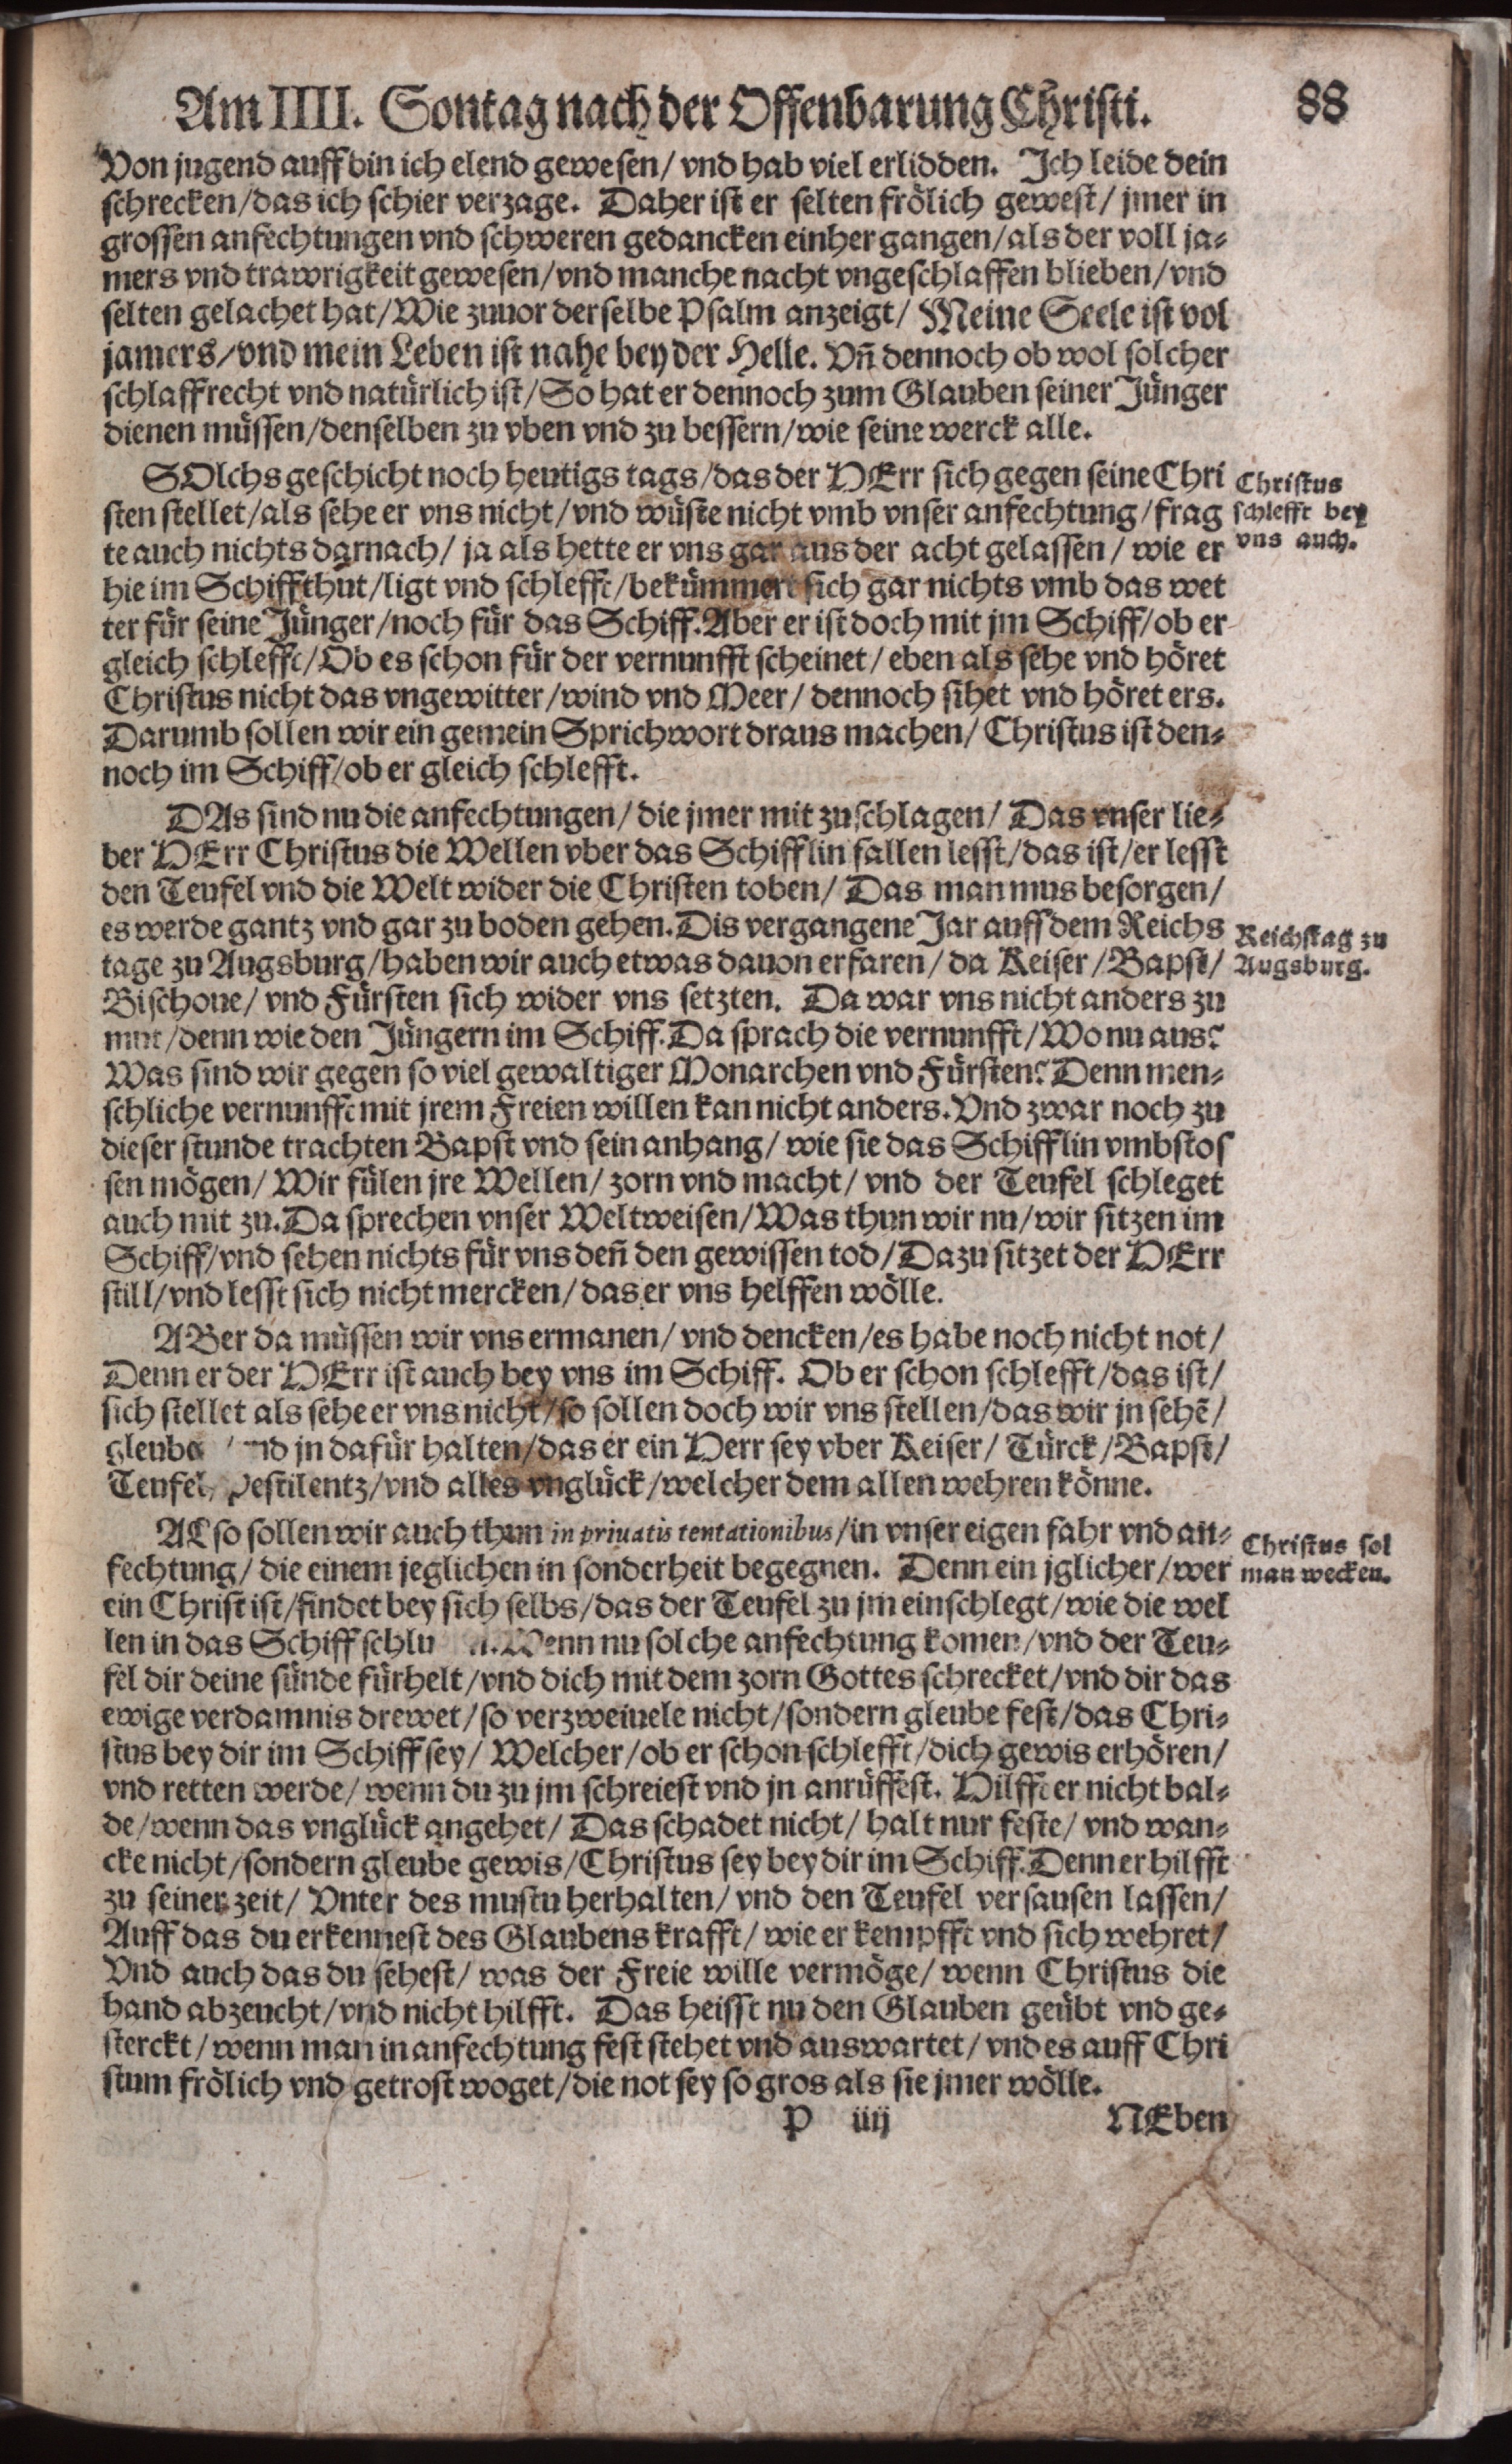 Am IIII. Sontag nach der Offenbarung Christi. 88
Von jugend auff bin ich elend gewesen / vnd hab viel erlidden. Ich leide dein
schrecken / das ich schier verzage. Daher ist er selten frölich gewest / jmer in
grossen anfechtungen vnd schweren gedancken einher gangen / als der voll ja-
mers vnd trawrigkeit gewesen / vnd manche nacht vngeschlaffen blieben / vnd
selten gelachet hat / Wie zuuor derselbe Psalm anzeigt / Meine Seele ist vol
jamers / vnd mein Leben ist nahe bey der Helle. Vñ dennoch ob wol solcher
schlaff recht vnd natürlich ist / So hat er dennoch zum Glauben seiner Jünger
dienen müssen / denselben zu vben vnd zu bessern / wie seine werck alle.
SOlchs geschicht noch heutigs tags / das der HErr sich gegen seine Chri
sten stellet / als sehe er vns nicht / vnd wüste nicht vmb vnser anfechtung / frag
te auch nichts darnach / ja als hette er vns gar aus der acht gelassen / wie er
hie im Schiff thut / ligt vnd schlefft / bekümmert sich gar nichts vmb das wet
ter für seine Jünger / noch für das Schiff. Aber er ist doch mit jm Schiff / ob er
gleich schlefft / Ob es schon für der vernunfft scheinet / eben als sehe vnd höret
Christus nicht das vngewitter / wind vnd Meer / dennoch sihet vnd höret ers.
Darumb sollen wir ein gemein Sprichwort draus machen / Christus ist den-
noch im Schiff / ob er gleich schlefft.
Christus
schlefft bey
vns auch.
DAs sind nu die anfechtungen / die jmer mit zu schlagen / Das vnser lie-
ber HErr Christus die Wellen vber das Schifflin fallen lesst / das ist / er lesst
den Teufel vnd die Welt wider die Christen toben / Das man mus besorgen /
es werde gantz vnd gar zu boden gehen. Dis vergangene Jar auff dem Reichs
tage zu Augsburg / haben wir auch etwas dauon erfaren / da Keiser / Bapst /
Bischoue / vnd Fürsten sich wider vns setzten. Da war vns nicht anders zu
mut / denn wie den Jüngern im Schiff. Da sprach die vernunfft / Wo nu aus?
Was sind wir gegen so viel gewaltiger Monarchen vnd Fürsten? Denn men-
schliche vernunfft mit jrem Freien willen kan nicht anders. Vnd zwar noch zu
dieser stunde trachten Bapst vnd sein anhang / wie sie das Schifflin vmbstos
sen mögen / Wir fülen jre Wellen / zorn vnd macht / vnd der Teufel schleget
auch mit zu. Da sprechen vnser Weltweisen / Was thun wir nu / wir sitzen im
Schiff / vnd sehen nichts für vns deñ den gewissen tod / Dazu sitzet der HErr
still / vnd lesst sich nicht mercken / das er vns helffen wölle.
Reichstag zu
Augsburg.
ABer da müssen wir vns ermanen / vnd dencken / es habe noch nicht not /
Denn er der HErr ist auch bey vns im Schiff. Ob er schon schlefft / das ist /
sich stellet als sehe er vns nicht / so sollen doch wir vns stellen / das wir jn sehē /
jn dafür halten / das er ein Herr sey vber Keiser / Türck / Bapst /
Teufel, Pestilentz / vnd alles vnglück / welcher dem allen wehren könne.
ALso sollen wir auch thun in priuatis tentationibus / in vnser eigen fahr vnd an-
fechtung / die einem jeglichen in sonderheit begegnen. Denn ein jglicher / wer
ein Christ ist / findet bey sich selbs / das der Teufel zu jm einschlegt / wie die wel
len in das Schiff Wenn nu solche anfechtung komen / vnd der Teu-
fel dir deine sünde fürhelt / vnd dich mit dem zorn Gottes schrecket / vnd dir das
ewige verdamnis drewet / so verzweiuele nicht / sondern gleube fest / das Chri-
stus bey dir im Schiff sey / Welcher / ob er schon schlefft / dich gewis erhören /
vnd retten werde / wenn du zu jm schreiest vnd jn anrüffest. Hilfft er nicht bal-
de / wenn das vnglück angehet / Das schadet nicht / halt nur feste / vnd wan-
cke nicht / sondern gleube gewis / Christus sey bey dir im Schiff. Denn er hilfft
zu seiner zeit / Vnter des mustu herhalten / vnd den Teufel versausen lassen /
Auff das du erkennest des Glaubens krafft / wie er kempfft vnd sich wehret /
Vnd auch das du sehest / was der Freie wille vermöge / wenn Christus die
hand abzeucht / vnd nicht hilfft. Das heisst nu den Glauben geübt vnd ge-
sterckt / wenn man in anfechtung fest stehet vnd auswartet / vnd es auff Chri
stum frölich vnd getrost woget / die not sey so gros als sie jmer wölle.
Christus sol
man wecken.
P iiij NEben